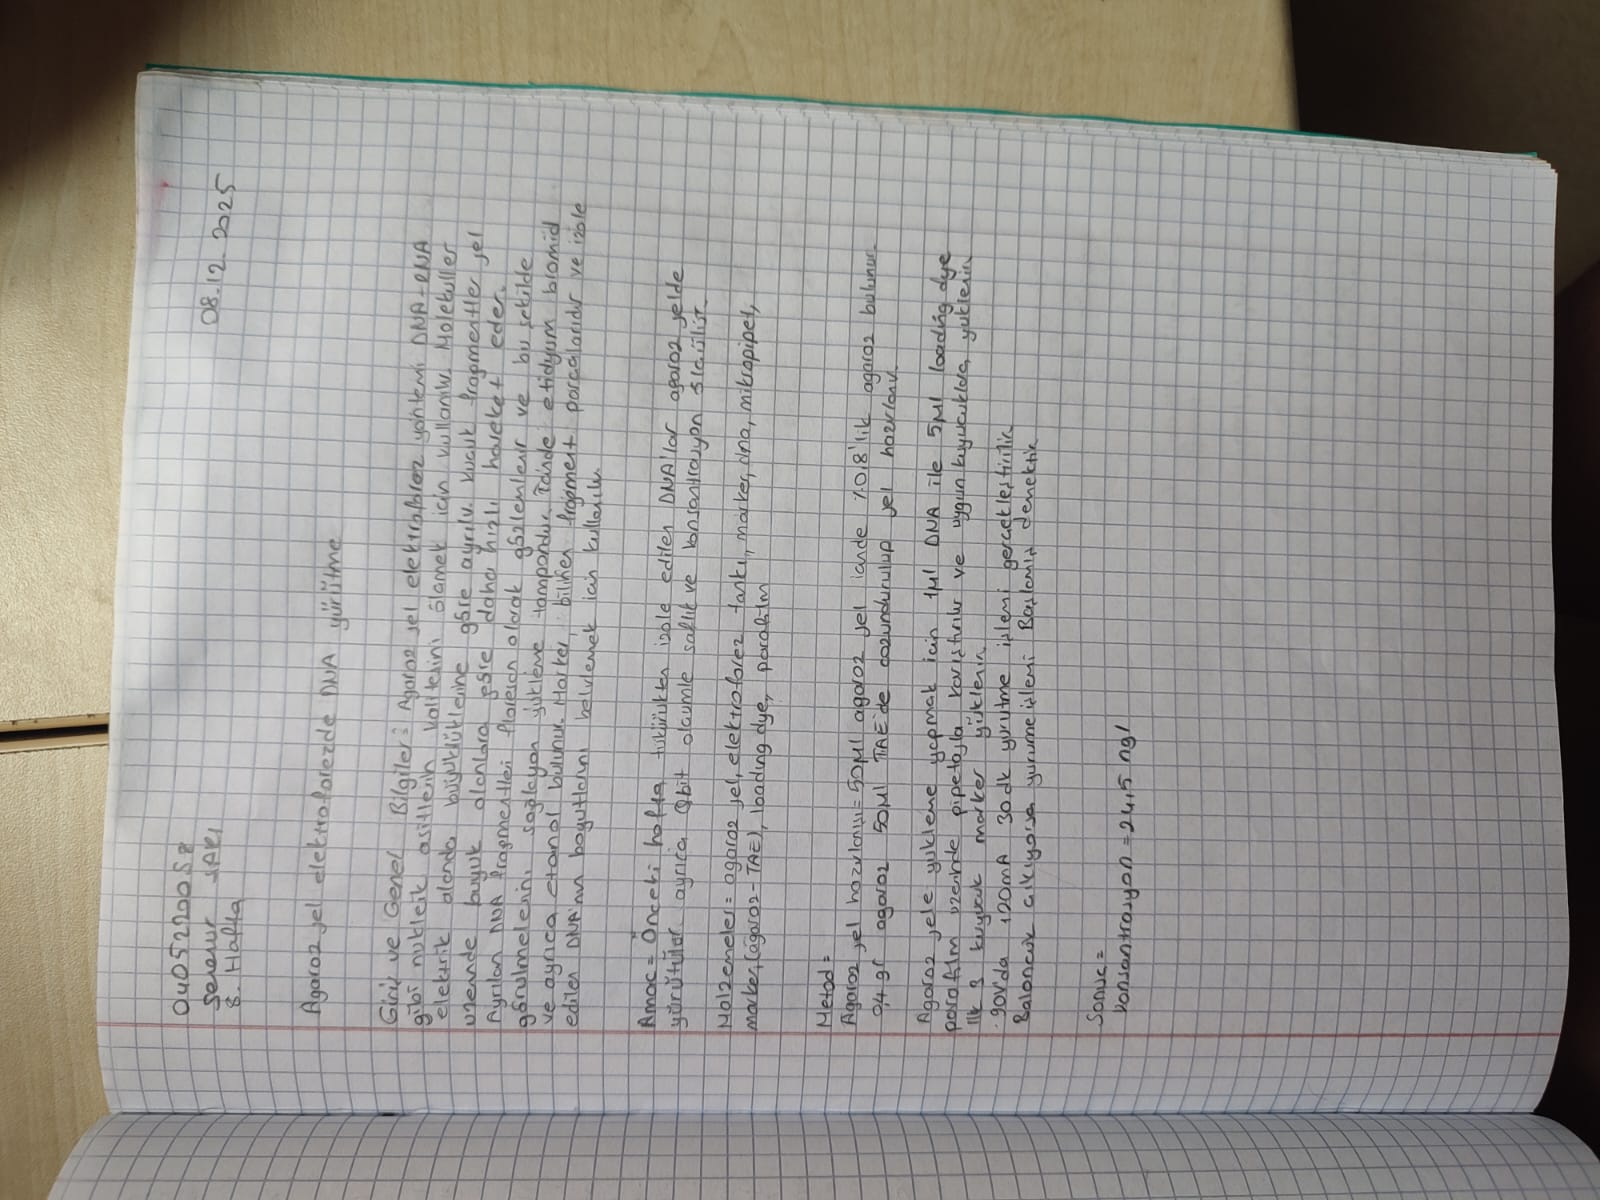 0405220058
08.12.2025
Sevenur SARI
8. Hafta
Agaroz jel elektroforezde DNA yürütme
Giriş ve Genel Bilgiler: Agaroz jel elektroforez yöntemi DNA-RNA
gibi nükleik asitlerin kalitesini ölçmek için kullanılır. Moleküller
elektrik alanda büyüklüklerine göre ayrılır. Küçük fragmentler jel
üzerinde büyük olanlara göre daha hızlı hareket eder.
Ayrılan DNA fragmentleri floresan olarak gözlemlenir ve bu şekilde
görülmelerini sağlayan yükleme tamponudur. İçinde etidyum bromid
ve ayrıca etanol bulunur. Marker, bilinen fragment parçalarıdır ve izole
edilen DNA'nın boyutlarını belirlemek için kullanılır.
Amaç = Önceki hafta tükürükten izole edilen DNA'lar agaroz jelde
yürütülür ayrıca Qbit ölçümle saflık ve konsantrasyon ölçülür.
Malzemeler = agaroz jel, elektroforez tankı, marker, dna, mikropipet,
marker, (agaroz-TAE), loading dye, parafilm
Metod =
Agaroz jel hazırlanışı = 50 µl agaroz jel içinde %0.8'lik agaroz bulunur.
0,4 gr agaroz 50 µl TAE'de çözündürülüp jel hazırlanır.
Agaroz jele yükleme yapmak için 1 µl DNA ile 5 µl loading dye
parafilm üzerinde pipetajla karıştırılır ve uygun kuyucuklara yüklenir
İlk 3 kuyucuk marker yüklenir.
90V'da 120mA 30dk yürütme işlemi gerçekleştirilir
Baloncuk çıkıyorsa yürüme işlemi Başlamış demektir
Sonuç =
konsantrasyon = 24,5 ng/